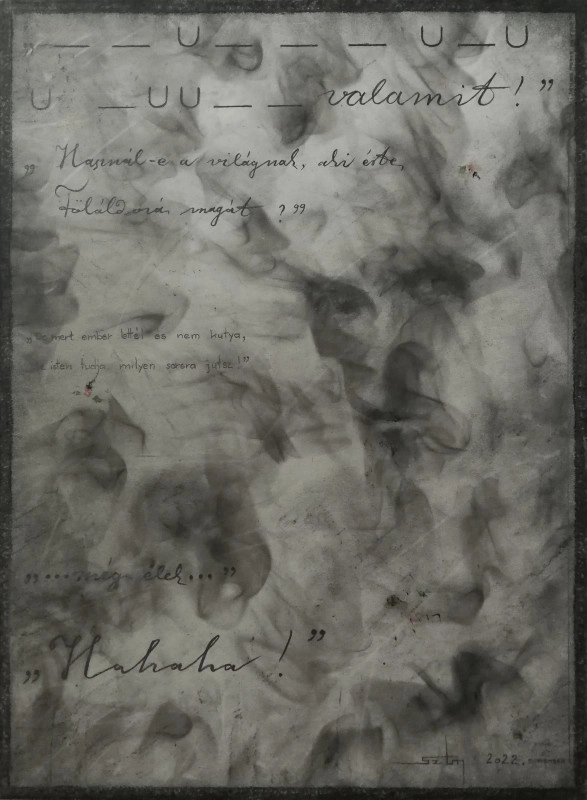 „ — — U — — — U — U
U — U U — — valamit ! ”
„ Használ-e a világnak, aki érte
Föláldozá magát ? ”
mert ember lettél és nem kutya,
isten tudja, milyen sorsra jutsz !”
„ ...még élek... ”
„ Hahaha ! ”
2022.